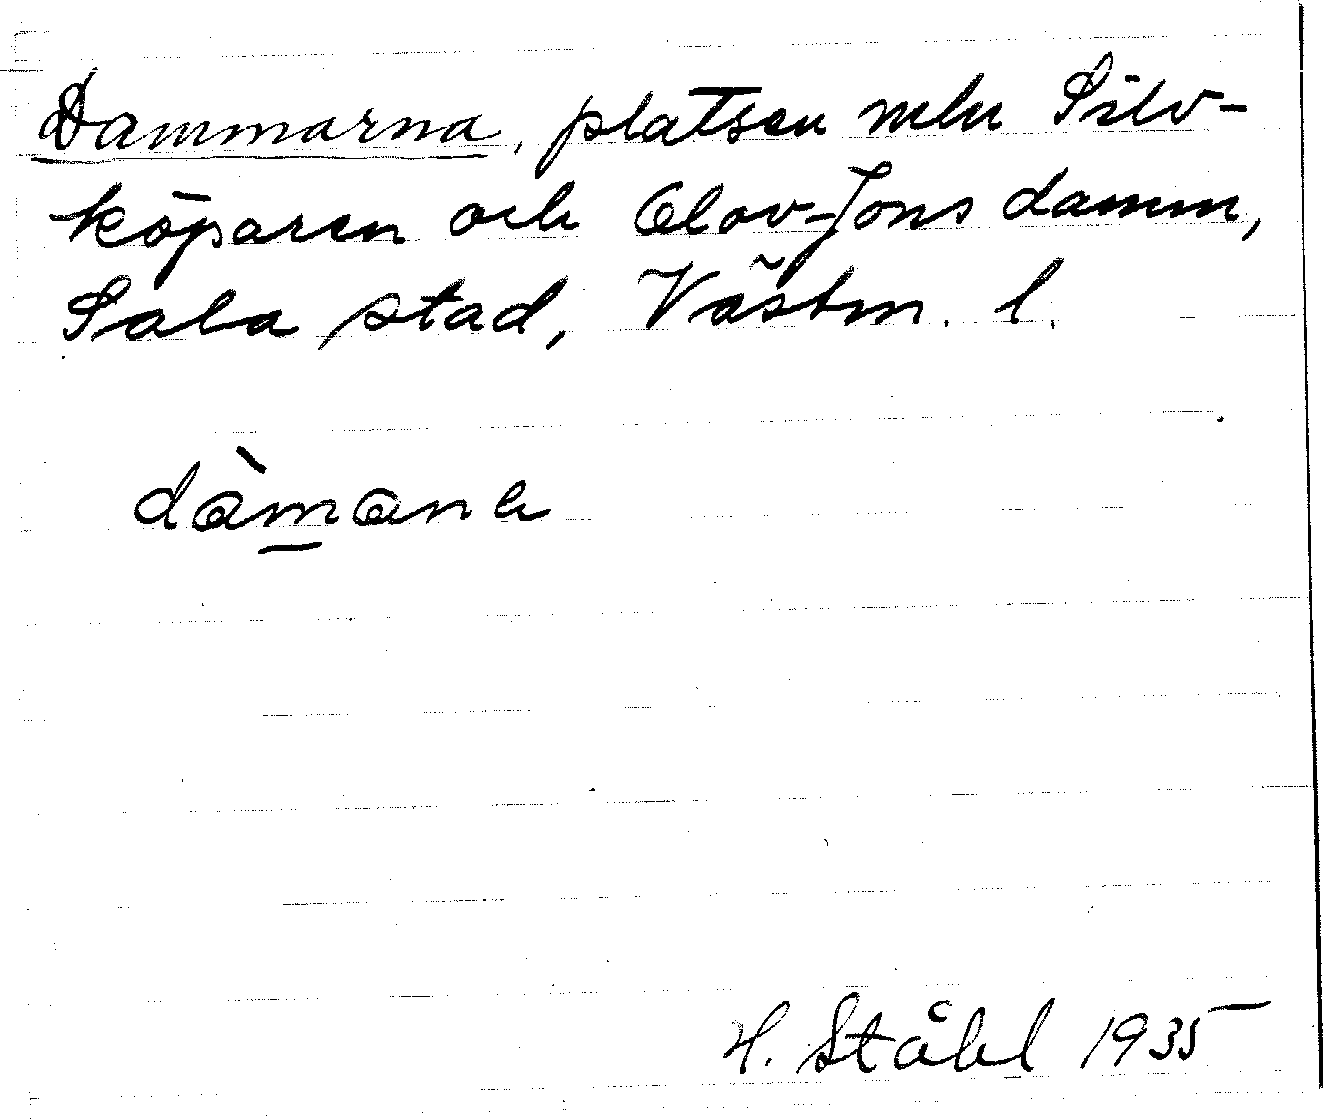 Dammarna, platsen mln Silv-
köparen och Olov-Jons damm,
Sala stad, Västm. l.
dàm̲ana
H. Ståhl 1935